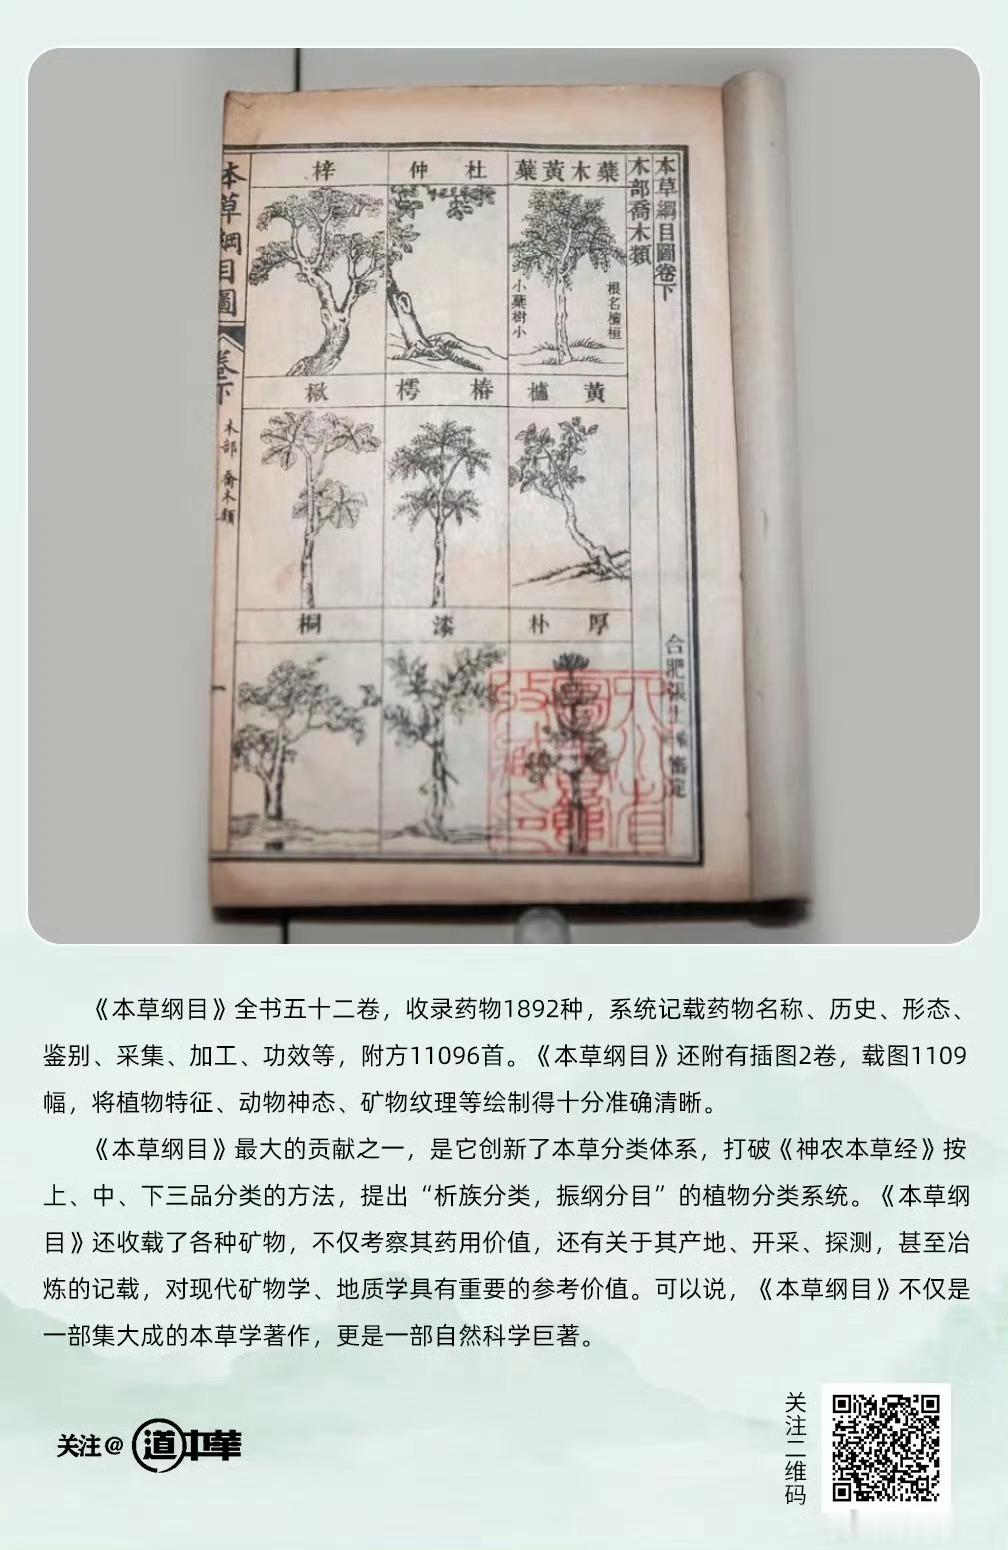 本草綱目圖卷下
木部喬木類
蘗木黃蘗
根名檀桓
小蘗樹小
杜仲
梓
黃櫨
椿樗
楸
厚朴
漆
桐
合肥張
鑒定
本草綱目圖
卷下
木部 喬木類
一
《本草纲目》全书五十二卷，收录药物1892种，系统记载药物名称、历史、形态、
鉴别、采集、加工、功效等，附方11096首。《本草纲目》还附有插图2卷，载图1109
幅，将植物特征、动物神态、矿物纹理等绘制得十分准确清晰。
《本草纲目》最大的贡献之一，是它创新了本草分类体系，打破《神农本草经》按
上、中、下三品分类的方法，提出“析族分类，振纲分目”的植物分类系统。《本草纲
目》还收载了各种矿物，不仅考察其药用价值，还有关于其产地、开采、探测，甚至冶
炼的记载，对现代矿物学、地质学具有重要的参考价值。可以说，《本草纲目》不仅是
一部集大成的本草学著作，更是一部自然科学巨著。
关注@道中华
关注二维码